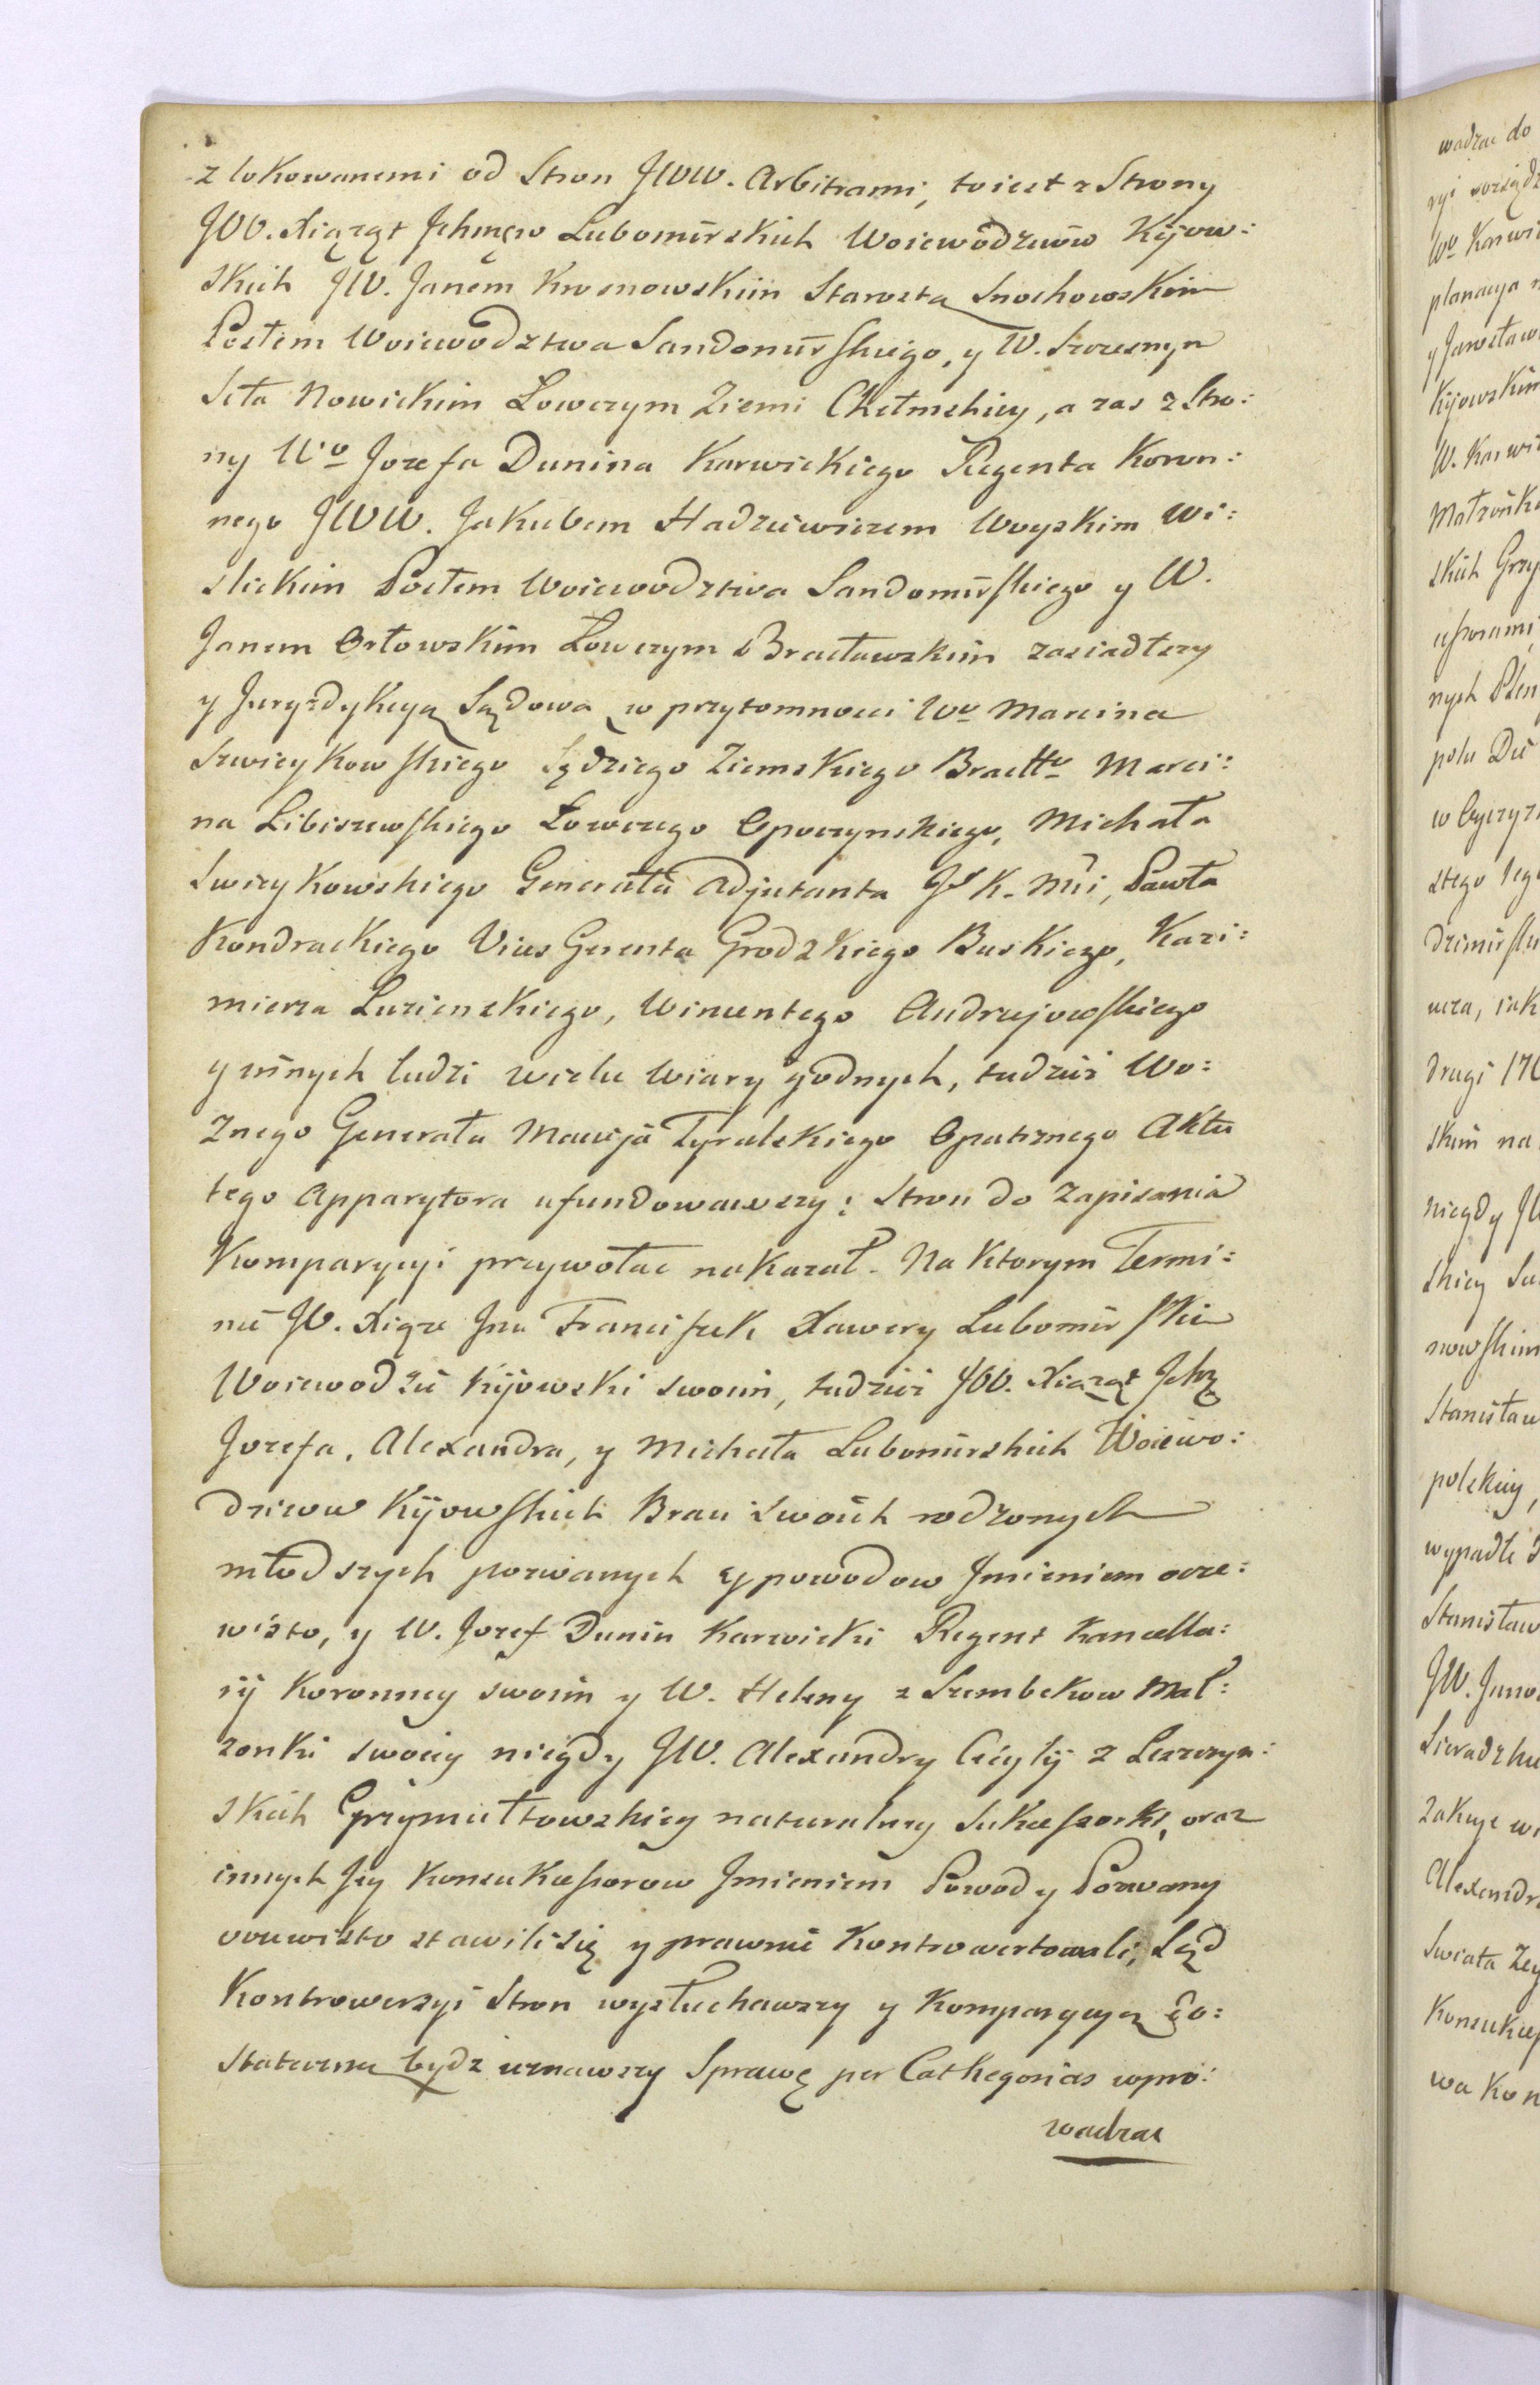 z lokowanemi od Stron JWW. Arbitrami, toiest z Strony
JOO. Xiążąt Jchmęw Lubomirskich Woiewodzicow Kijow:
skich JW. Janem Krosnowskim Starostą Snochowskim
Posłem Woiewodztwa Sandomirskiego, y W. Szczesnym
Seta Nowickim Łowczym Ziemi Chełmskiey, a zas z Stro:
ny Wo Jozefa Dunina Karwickiego Regenta Koron:
nego JWW. Jakubem Hadziewiczem Woyskim Wi:
slickim Posłem Woiewodztwa Sandomirskiego y W.
Janem Orłowskim Łowczym Bracławskim zasiadłszy
y Juryzdykcyą Sądową w przytomnosci Wo Marcina
Swieykowskiego Sędziego Ziemskiego Bracłłо Marci:
na Libiszewskiego Łowczego Opoczynskiego, Michała
Swieykowskiego Generała Adjutanta JoK. Mci, Pawła
Kondrackiego Vices Gerenta Grodzkiego Buskiego, Kazi:
mierza Luzienskiego, Wincentego Andrzejowskiego
y innych ludzi wielu wiary godnych, tudziez Wo:
znego Generała Macieja Tyralskiego Opatrznego Aktu
tego Apparytora ufundowawszy; Stron do zapisania
Komparycyi przywołac nakazał. Na ktorym Termi:
nie JO. Xiąze Jmc Franciszek Xawery Lubomirski
Woiewodzic Kijowski swoim, tudziez JOO. Xiążąt Jchę
Jozefa, Alexandra, y Michała Lubomirskich Woiewo:
dzicow Kijowskich Braci swoich rodzonych
młodszych pozwanych y powodow Jmieniem ocze:
wisto, y W. Jozef Dunin Karwicki Regent Kancella:
ryi Koronney swoim y W. Heleny z Szembekow Mał:
zonki swoiey niegdy JW. Alexandry Cecylij z Leszczyn:
skich Grzymułtowskiey naturalney Sukcessorki, oraz
innych Jey Konsukcessorow Jmieniem Powody Pozwany
oczewisto stawili się y prawnie Kontrowertowali, Sąd
Kontrowersyi Stron wysłuchawszy y Komparycyą do:
stateczną bydz uznawszy Sprawę per Cathegorias wpro:
wadzac